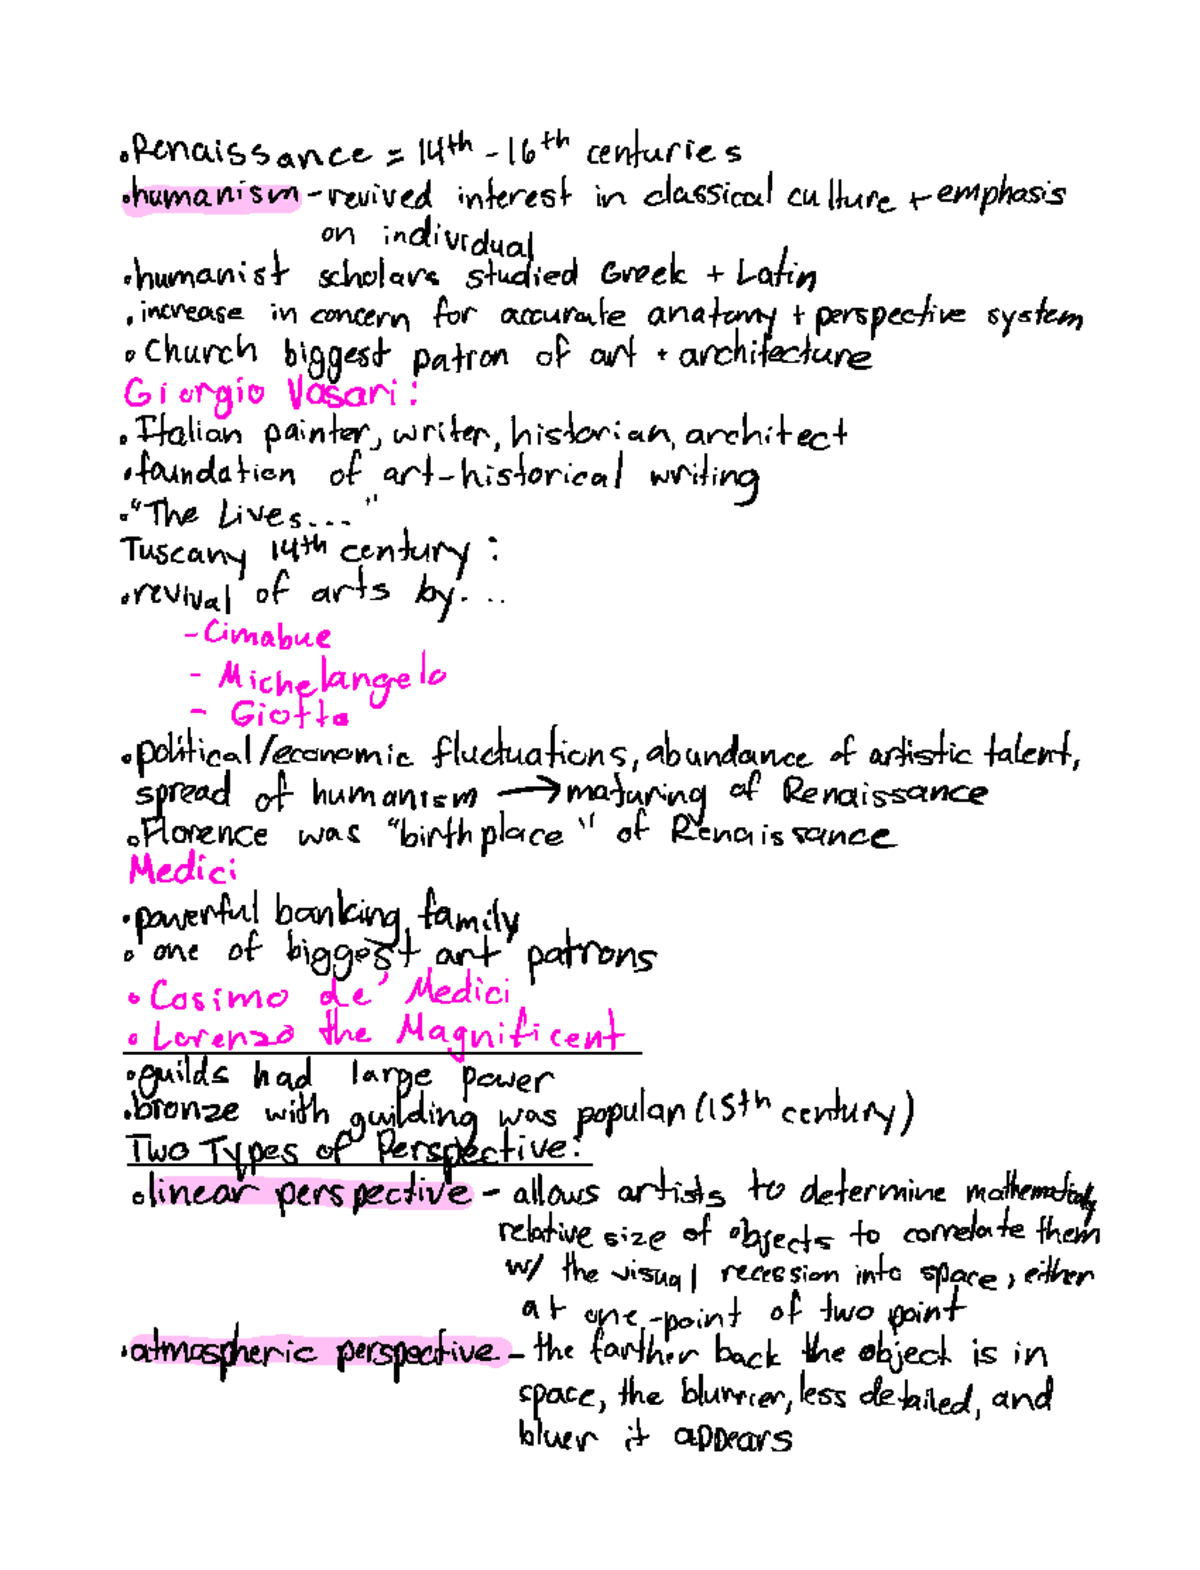 •Renaissance = 14th - 16th centuries
•humanism - revived interest in classical culture + emphasis
on individual
•humanist scholars studied Greek + Latin
•increase in concern for accurate anatomy + perspective system
•Church biggest patron of art + architecture
Giorgio Vasari:
•Italian painter, writer, historian, architect
•foundation of art-historical writing
•"The Lives..."
Tuscany 14th century:
•revival of arts by...
- Cimabue
- Michelangelo
- Giotto
•political/economic fluctuations, abundance of artistic talent,
spread of humanism → maturing of Renaissance
•Florence was "birthplace" of Renaissance
Medici
•powerful banking family
•one of biggest art patrons
•Cosimo de' Medici
•Lorenzo the Magnificent
•guilds had large power
•bronze with guilding was popular (15th century)
Two Types of Perspective:
•linear perspective - allows artists to determine mathematically
relative size of objects to correlate them
w/ the visual recession into space, either
at one-point of two point
•atmospheric perspective - the farther back the object is in
space, the blurrier, less detailed, and
bluer it appears